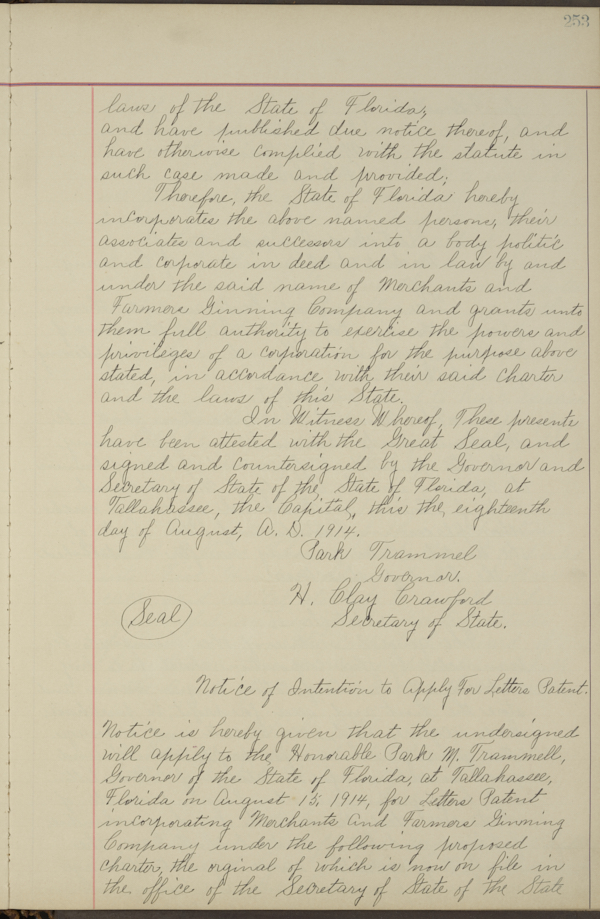 253
laws of the State of Florida,
and have published due notice thereof, and
have otherwise complied with the statute in
such case made and provided;
Therefore, the State of Florida hereby
incorporates the above named persons, their
associates and successors into a body politic
and corporate in deed and in law by and
under the said name of Merchants and
Farmers Ginning Company and grants unto
them full authority to exercise the powers and
privileges of a corporation for the purpose above
stated, in accordance with their said charter
and the laws of this State.
In Witness Whereof, These presents
have been attested with the Great Seal, and
signed and countersigned by the Governor and
Secretary of State of the State of Florida, at
Tallahassee, the Capital, this the eighteenth
day of August, A. D. 1914.
Park Trammel
Governor.
H. Clay Crawford
(Seal) Secretary of State.
Notice of Intention to Apply For Letters Patent.
Notice is hereby given that the undersigned
will apply to the Honorable Park M. Trammell,
Governor of the State of Florida, at Tallahassee,
Florida on August 15, 1914, for Letters Patent
incorporating Merchants and Farmers Ginning
Company under the following proposed
charter, the orginal of which is now on file in
the office of the Secretary of State of the State